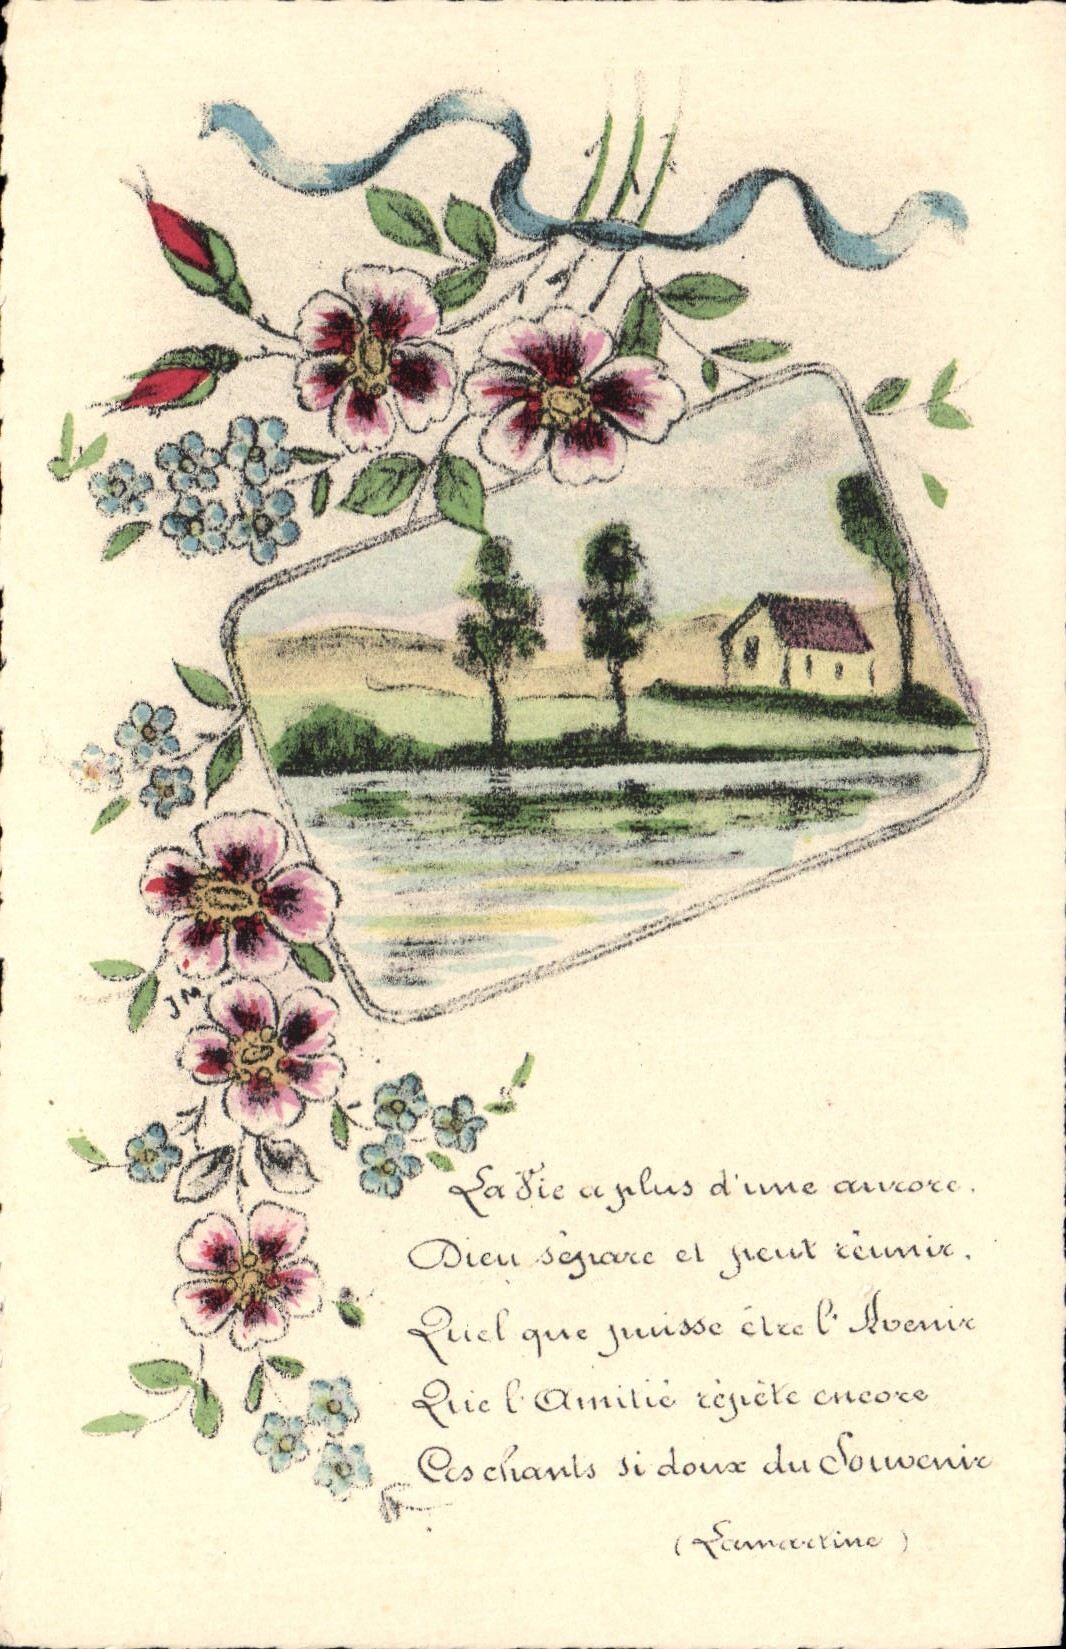 JM
La Vie a plus d'une aurore.
Dieu sépare et peut réunir.
Quel que puisse être l'Avenir
Que l'Amitié répète encore
Ces chants si doux du Souvenir
(Lamartine)